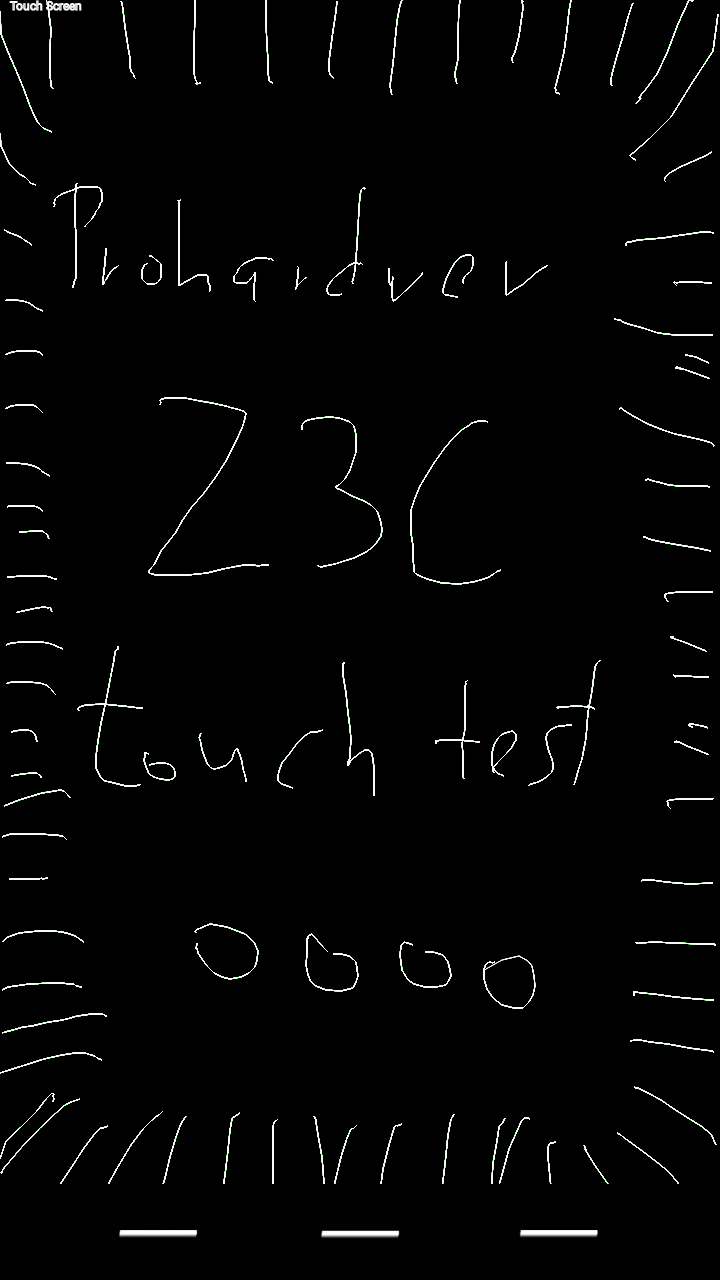 Touch Screen
Prohardver
Z3C
touch test